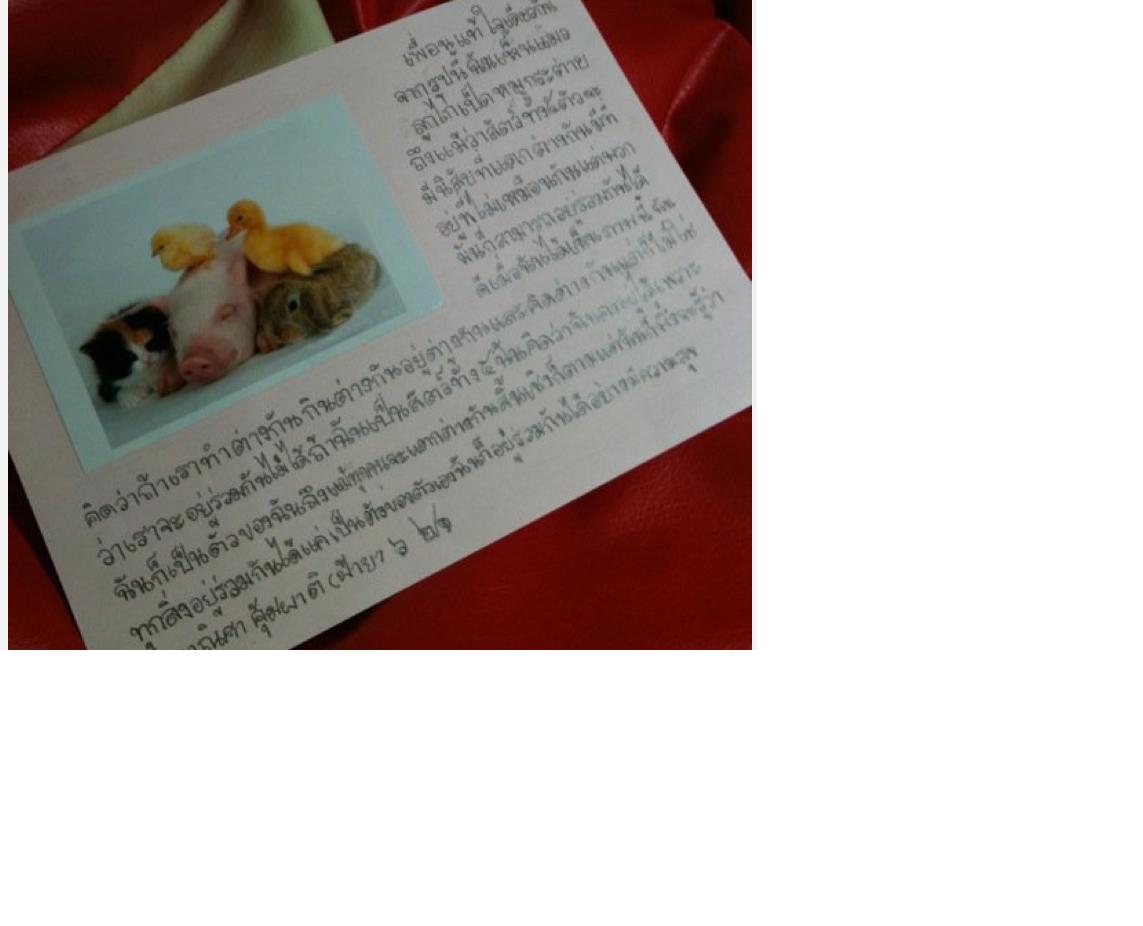 เพื่อนแท้ ใจเดียวกัน
จากรูปนี้ ฉันเห็นแมว
ลูกไก่ เป็ด หมู กระต่าย
ถึงแม้ว่าสัตว์ทั้ง๕ตัวจะ
มีนิสัยที่แตกต่างกันมีที่
อยู่ที่ไม่เหมือนกันแต่พวก
มันก็สามารถอยู่ร่วมกันได้
ดีเมื่อฉันได้เห็นภาพนี้ ฉัน
คิดว่าถ้าเราทำต่างกันกินต่างกันอยู่ต่างกันและคิดต่างกันมันก็ไม่ใช่
ว่าเราจะอยู่ร่วมกันไม่ได้ถ้าฉันเป็นสัตว์ทั้ง๕ฉันคิดว่าฉันคงอยู่ได้เพราะ
ฉันก็เป็นตัวของฉันถึงแม้ทุกคนจะแตกต่างกันสิ้นเชิงก็ตามแต่ฉันก็ยังจะรู้ว่า
ทุกสิ่งอยู่ร่วมกันได้แค่เป็นตัวของตัวเองฉันก็อยู่ร่วมกันได้อย่างมีความสุข
(ฝ้าย) ๖ ๒/๑